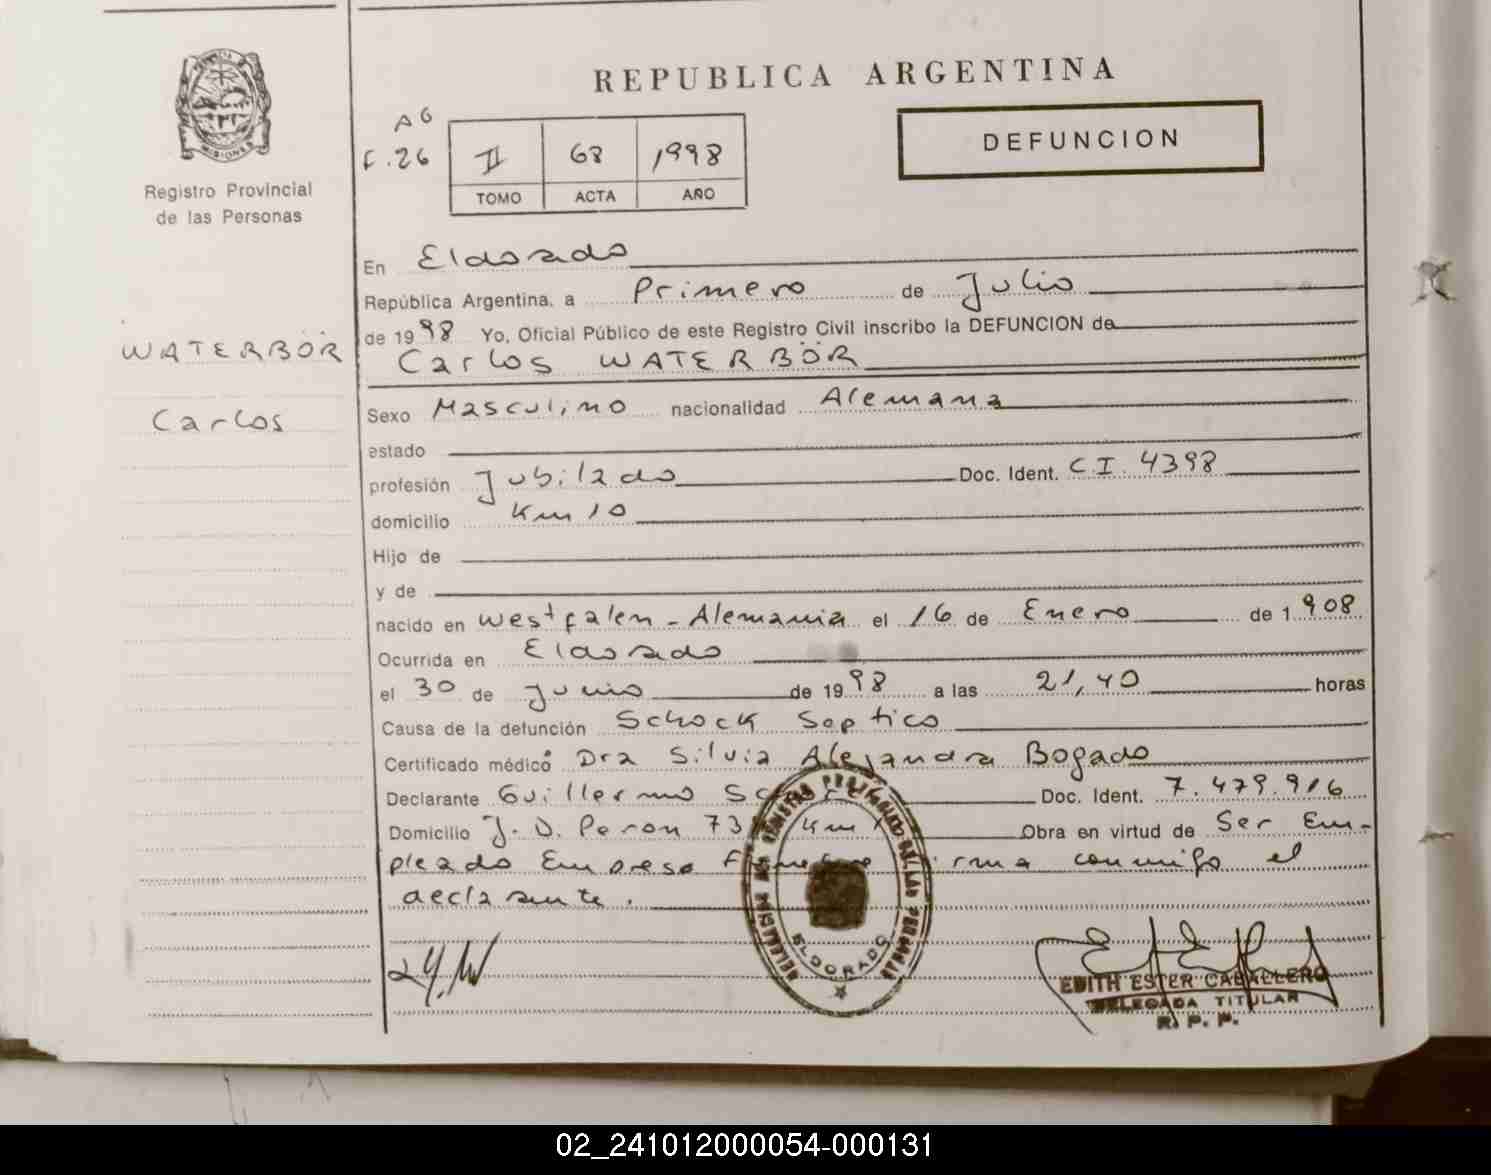 REPUBLICA ARGENTINA
MISIONES
Registro Provincial
de las Personas
A6
F. 26
II 68 1998
TOMO ACTA AÑO
DEFUNCION
WATERBÖR
Carlos
En Eldorado
República Argentina, a Primero de Julio
de 1998 Yo, Oficial Público de este Registro Civil inscribo la DEFUNCION de
Carlos WATERBÖR
Sexo Masculino nacionalidad Alemana
estado
profesión Jubilado Doc. Ident. C.I. 4398
domicilio Km 10
Hijo de
y de
nacido en Westfalen - Alemania el 16 de Enero de 1908
Ocurrida en Eldorado
el 30 de Junio de 1998 a las 21,40 horas
Causa de la defunción Schock Septico
Certificado médico Dra Silvia Alejandra Bogado
Declarante Guillermo Doc. Ident. 7.479.916
Domicilio J. D. Peron 73 Km Obra en virtud de Ser Em-
pleado Empresa conmigo el
declarante.
ELDORADO
EDITH ESTER CABALLERO
DELEGADA TITULAR
R. P. P.
02_241012000054-000131